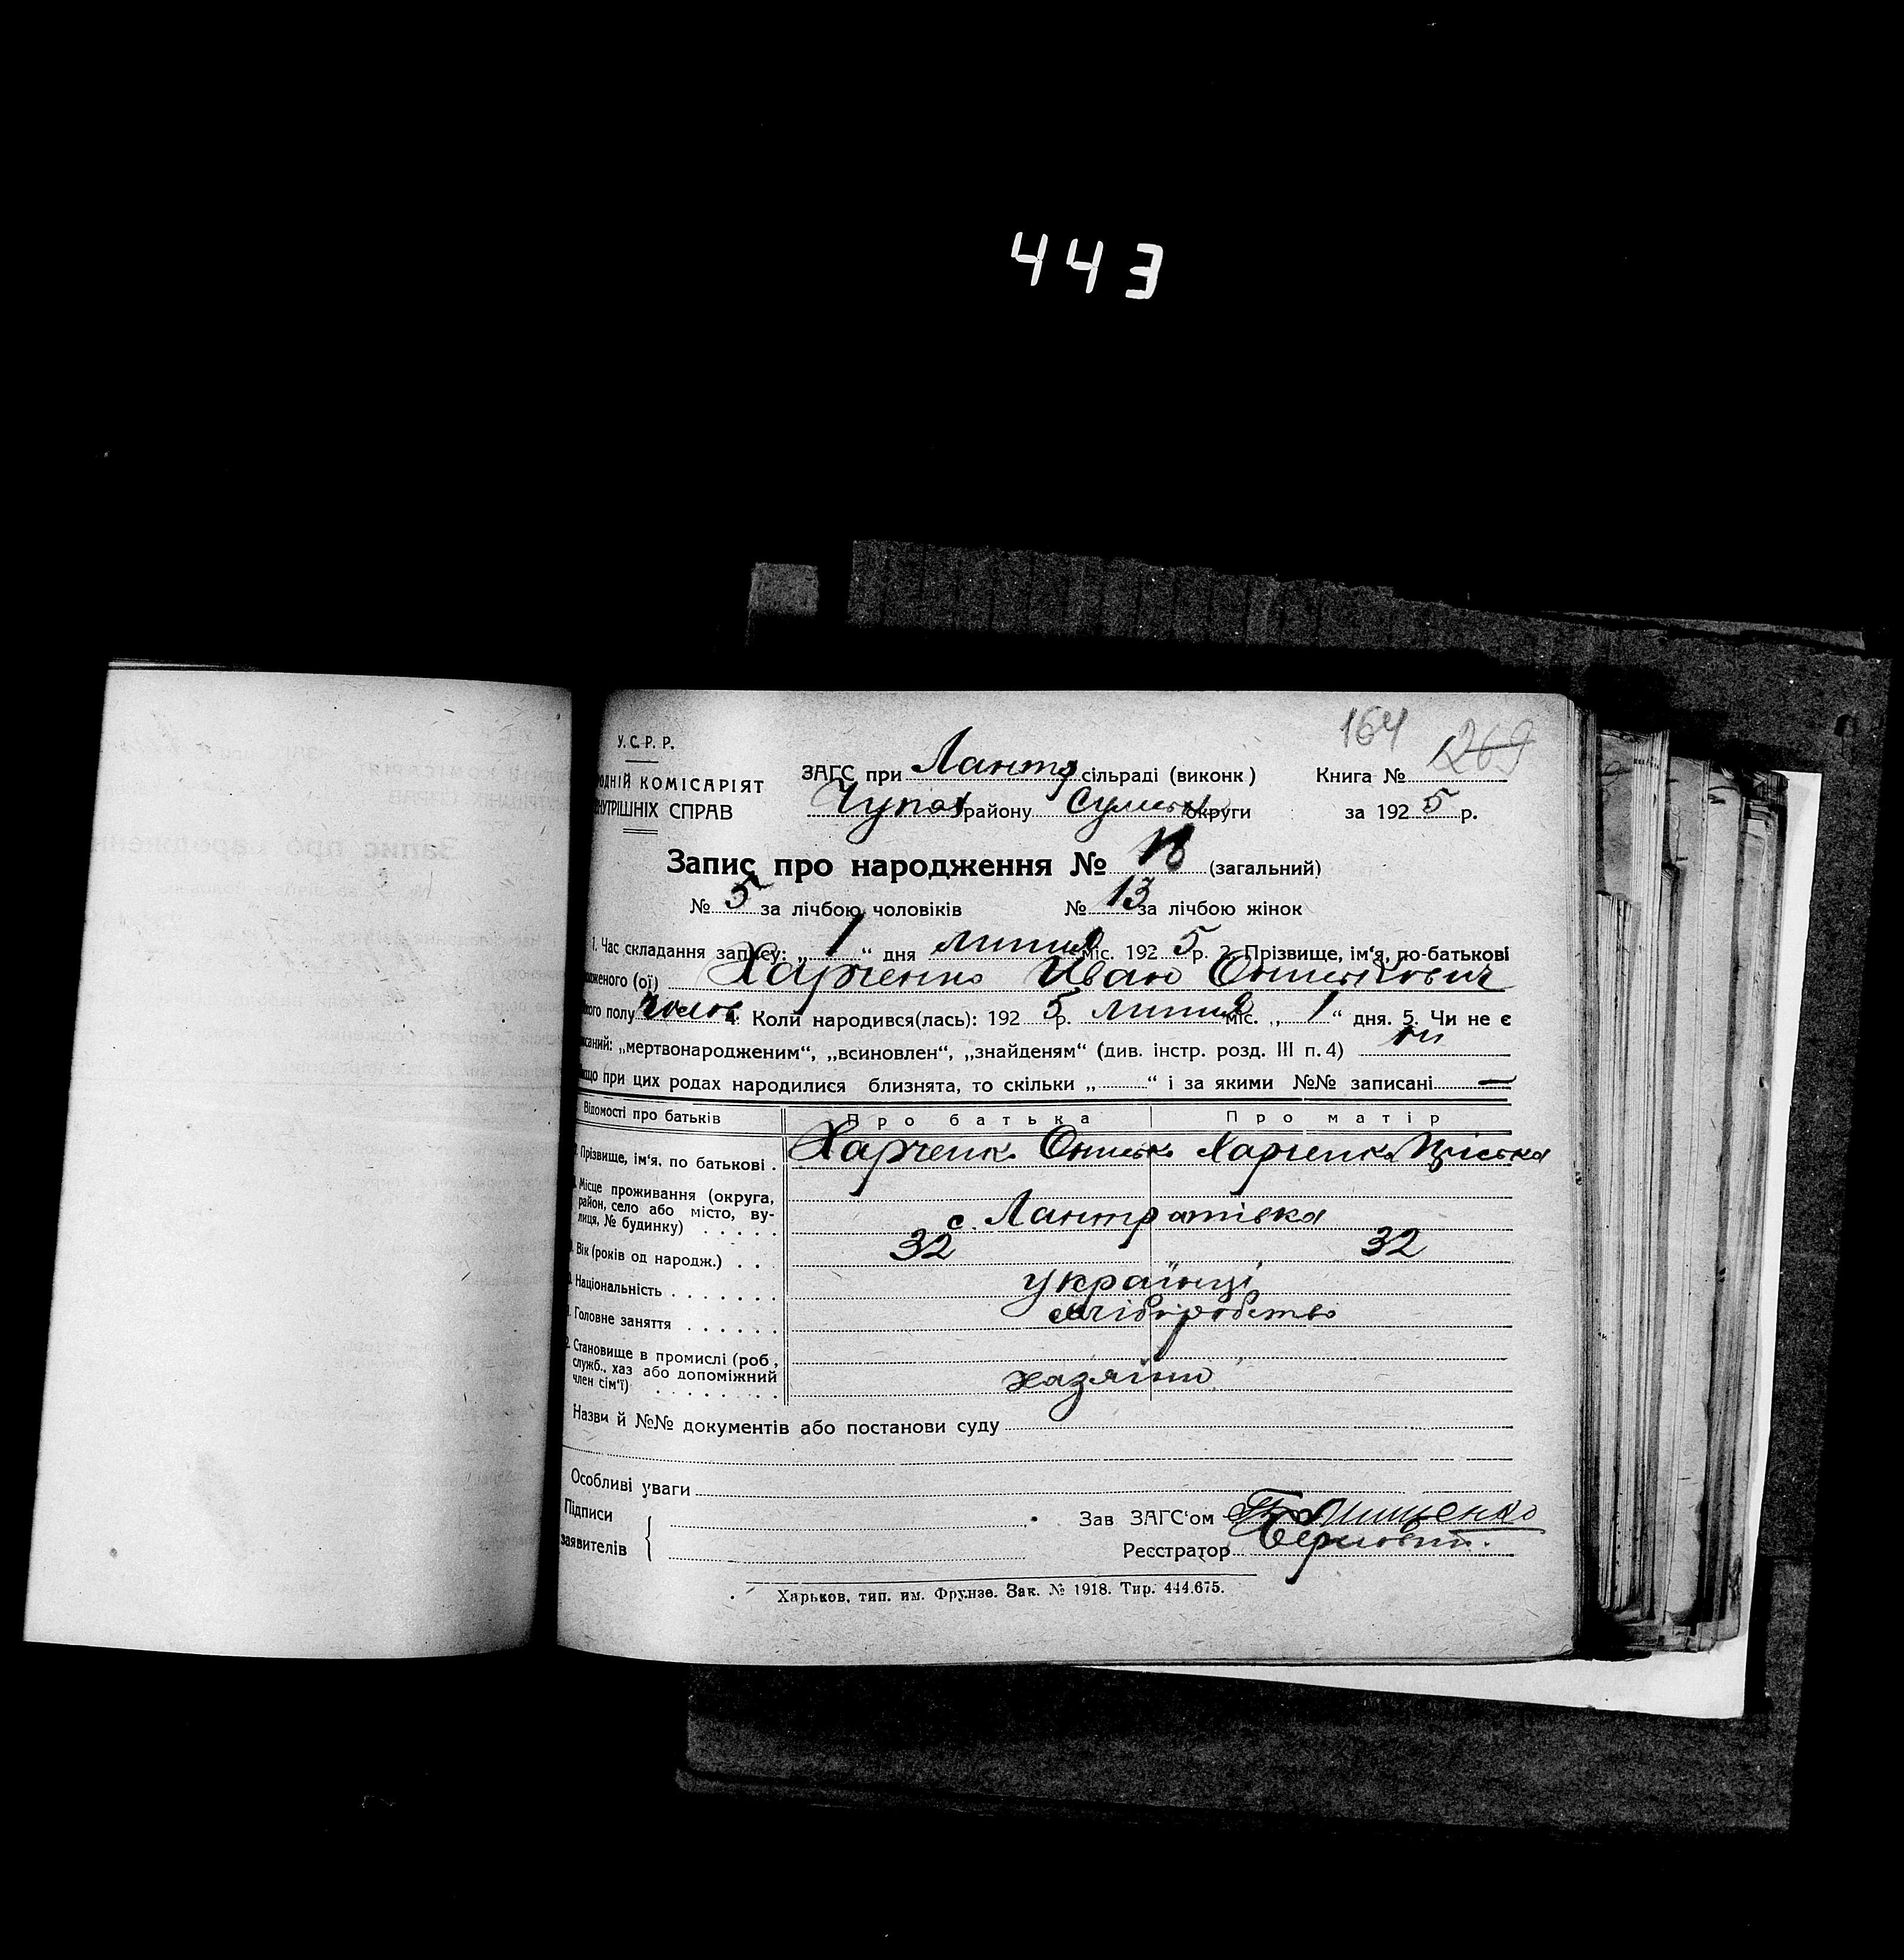 443
164 269
У.С.Р.Р.
ОДНІЙ КОМІСАРІЯТ
НУТРІШНІХ СПРАВ
ЗАГС при Лантр. сільраді (виконк) Книга №
Чупах району Сумськ округи за 1925 р.
Запис про народження № 18 (загальний)
№ 5 за лічбою чоловіків № 13 за лічбою жінок
1. Час складання запису: „ 1 “ дня липня міс. 1925 р. 2. Прізвище, ім‘я, по-батькові
дженого (ої) Харченко Иван Ониськович
ного полу чолов 4. Коли народився(лась): 1925 р. липня міс. „ 1 “ дня. 5. Чи не є
исаний: „мертвонародженим“, „всиновлен“, „знайденям“ (див. інстр. розд. III п. 4) ні
кщо при цих родах народилися близнята, то скільки „ “ і за якими №№ записані —
Відомості про батьків Про батька Про матір
Прізвище, ім‘я, по батькові . Харченк Онисько Харченко
Місце проживання (округа,
район, село або місто, ву-
лиця, № будинку) . . . . . с. Лантратівка
Вік (років од народж.) . . . 32 32
Національність . . . . . . . українці
1. Головне заняття . . . . . . хліборобство
2. Становище в промислі (роб,
служб., хаз або допоміжний
член сім‘ї) . . . . . . . . хазяїни
Назви й №№ документів або постанови суду
Особливі уваги
Підписи
заявителів
Зав ЗАГС‘ом
Реєстратор
Харьков, тип. им. Фрунзе. Зак. № 1918. Тир. 444.675.